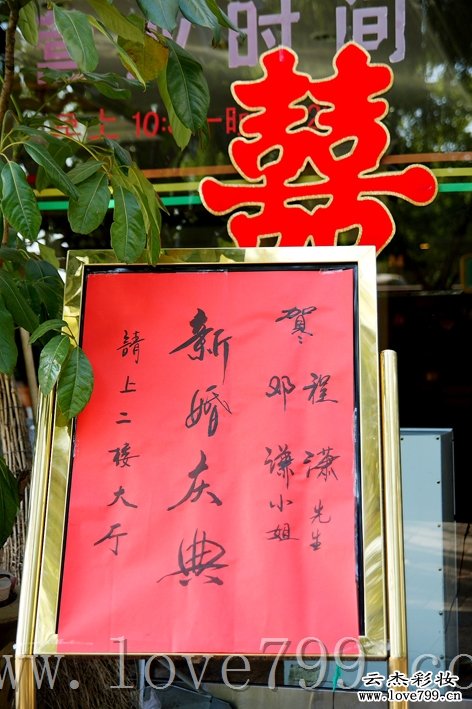 时间
晚上10:30—
囍
賀
程潇先生
邓谦小姐
新婚庆典
請上二楼大厅
www.love799.com
云杰彩妆
www.love799.cn